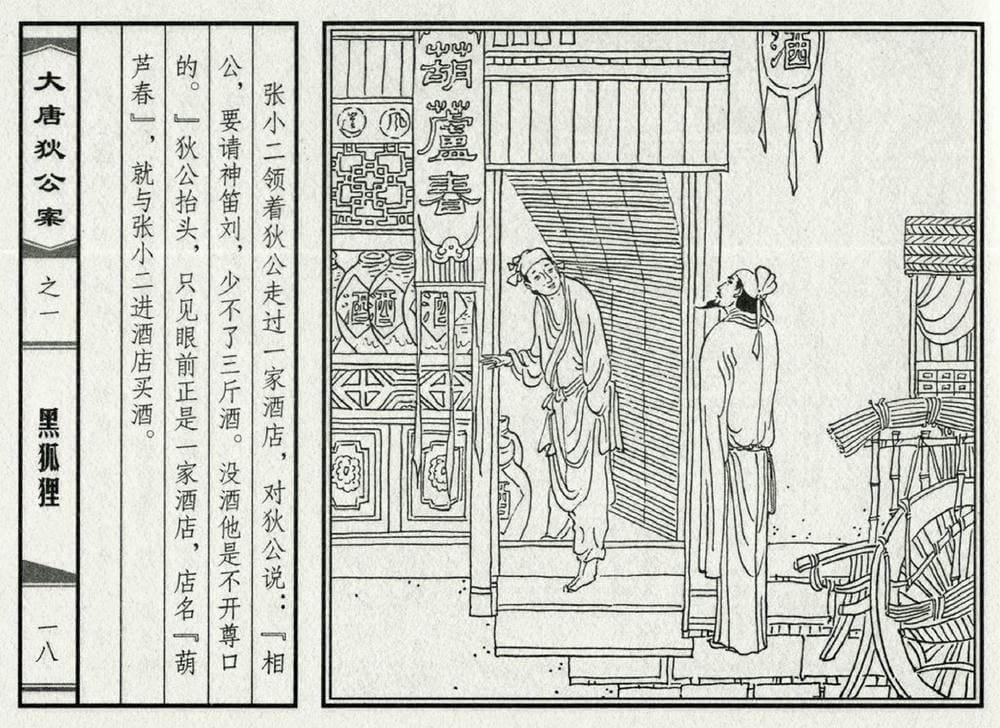 张小二领着狄公走过一家酒店，对狄公说：『相
公，要请神笛刘，少不了三斤酒。没酒他是不开尊口
的。』狄公抬头，只见眼前正是一家酒店，店名『葫
芦春』，就与张小二进酒店买酒。
大唐狄公案
之一
黑狐狸
一八
葫蘆春
酒
酒
酒
酒
酒